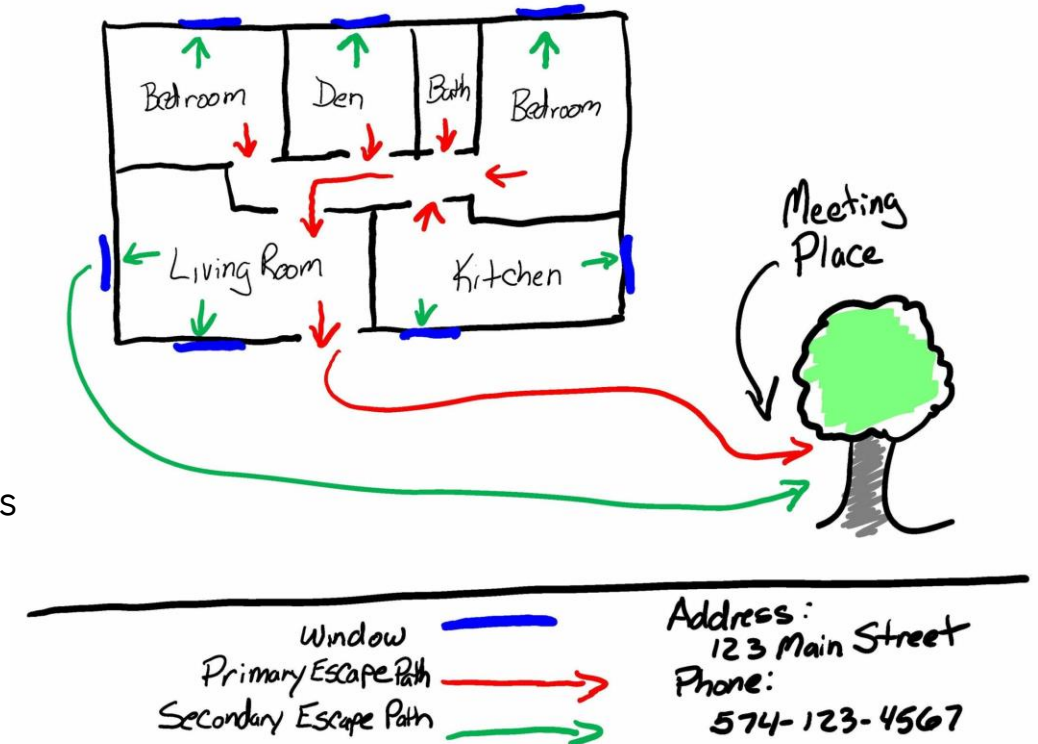 Bedroom
Den
Bath
Bedroom
Living Room
Kitchen
Meeting
Place
s
Window
Primary Escape Path
Secondary Escape Path
Address:
123 Main Street
Phone:
574-123-4567